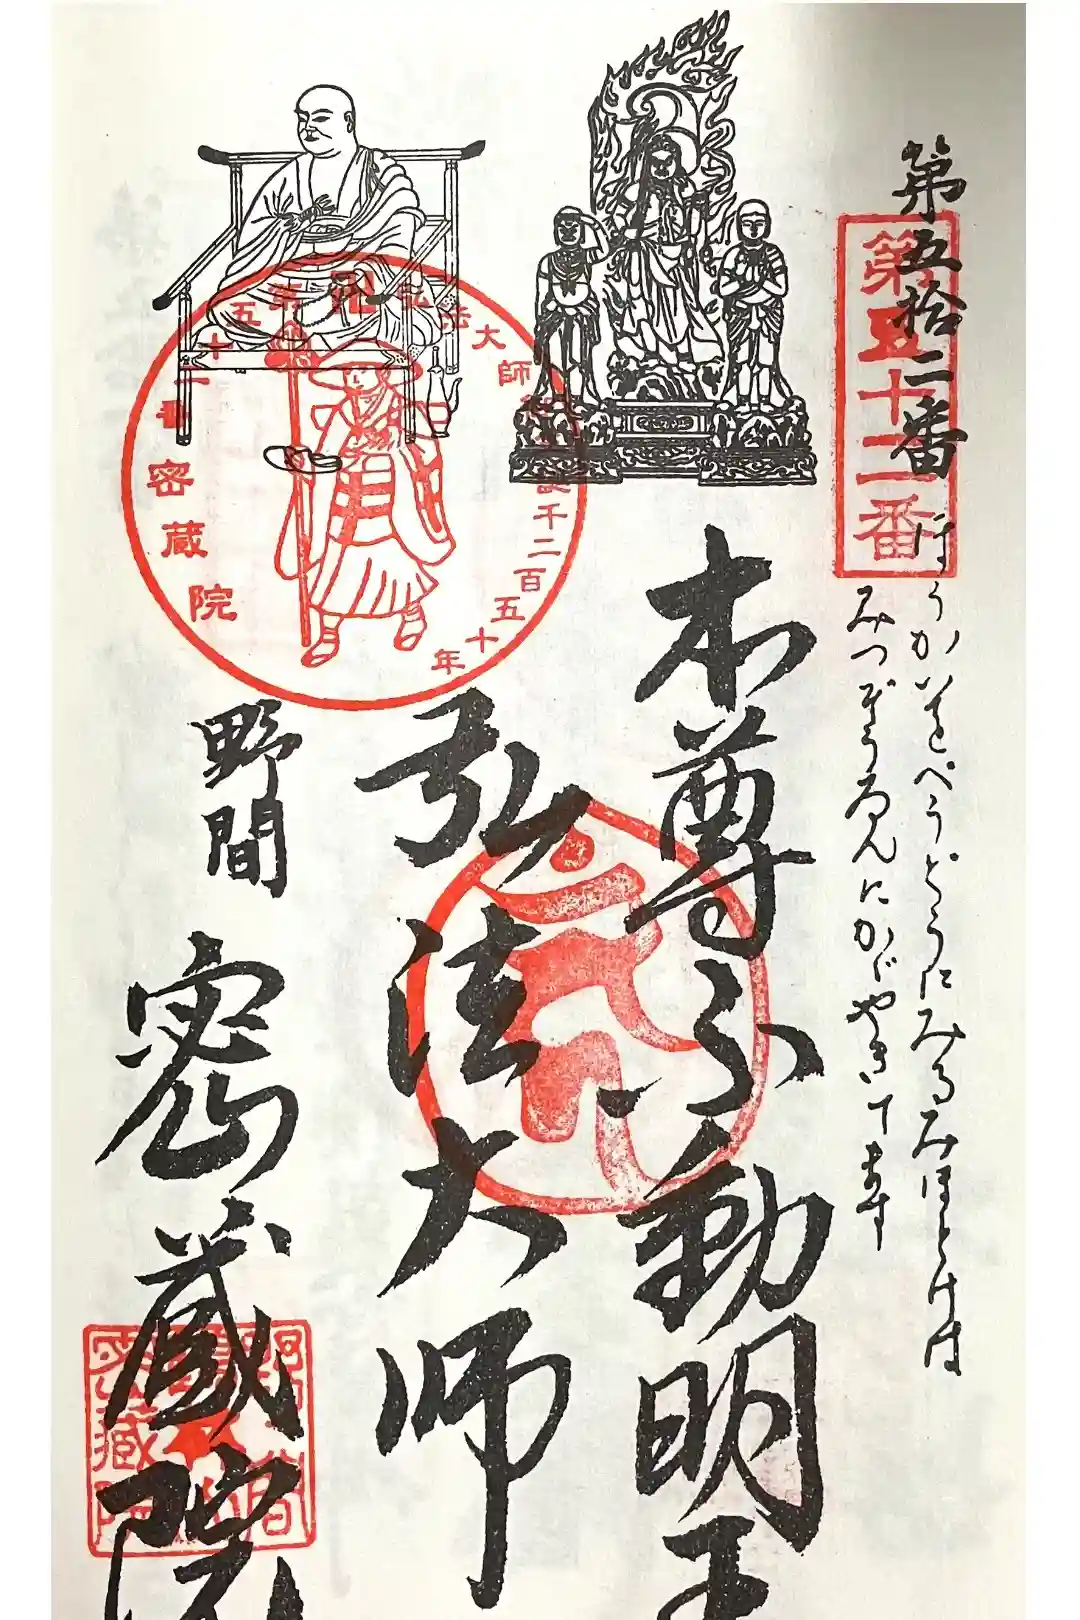 第五拾二番
第五十二番
ほうかいをべうどうにみるみほとけは
みつぞうゐんにかゞやきてます
本尊不動明王
弘法大師
野間
密蔵院
弘法大師御生誕千二百五十年
第五十二番密蔵院